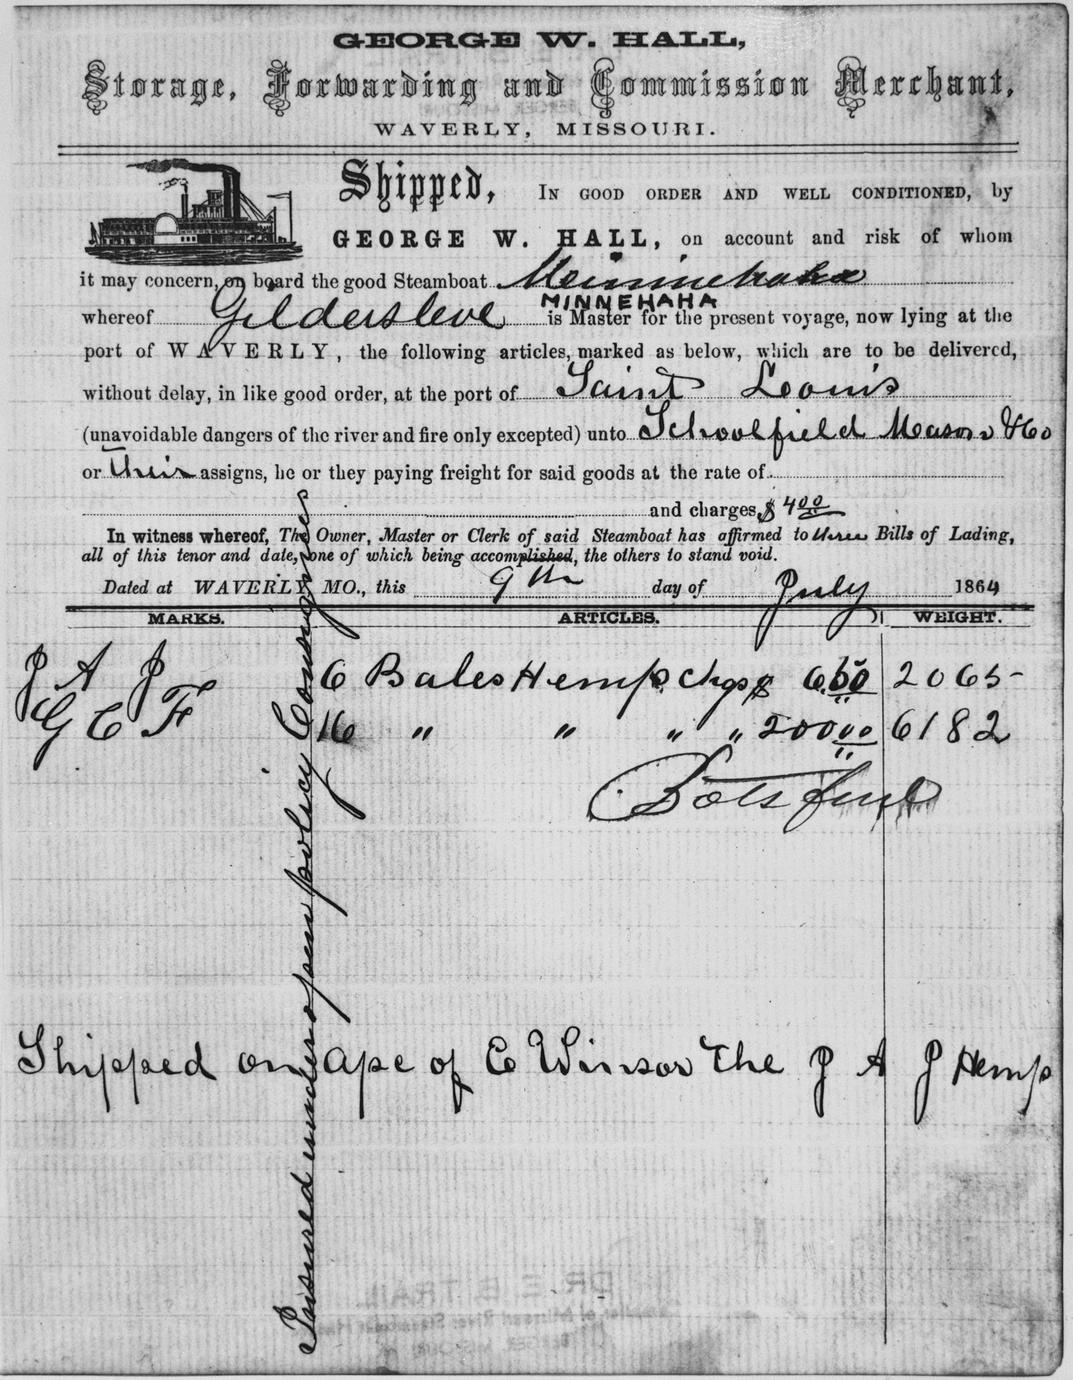 GEORGE W. HALL,
Storage, Forwarding and Commission Merchant,
WAVERLY, MISSOURI.
Shipped, IN GOOD ORDER AND WELL CONDITIONED, by
GEORGE W. HALL, on account and risk of whom
it may concern, on board the good Steamboat Meinnehaha
MINNEHAHA
whereof Gildersleve is Master for the present voyage, now lying at the
port of WAVERLY, the following articles, marked as below, which are to be delivered,
without delay, in like good order, at the port of Saint Louis
(unavoidable dangers of the river and fire only excepted) unto Schoolfield Meason & Co
or their assigns, he or they paying freight for said goods at the rate of
and charges $4 00
In witness whereof, The Owner, Master or Clerk of said Steamboat has affirmed to three Bills of Lading,
all of this tenor and date, one of which being accomplished, the others to stand void.
Dated at WAVERLY MO., this 9th day of July 1864
MARKS. ARTICLES. WEIGHT.
J A J 6 Bales Hemp Chgs $ 6.50 2065
G C F 16 " " " " 2000 6182
Shipped on of C Winsor The J A J Hemp
Insured under open policy Consignees
DR. E. B. TRAIL
BERGER, MISSOURI